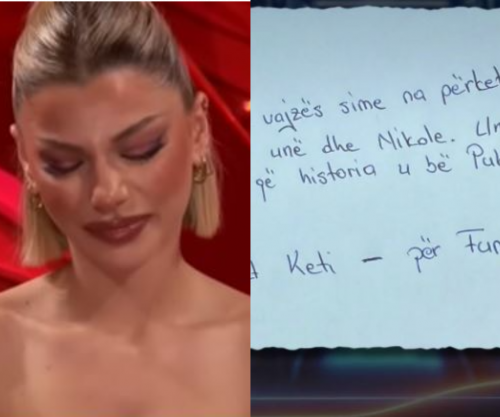 vajzës sime na përket
unë dhe Nikole.
që historia u bë
Keti – për